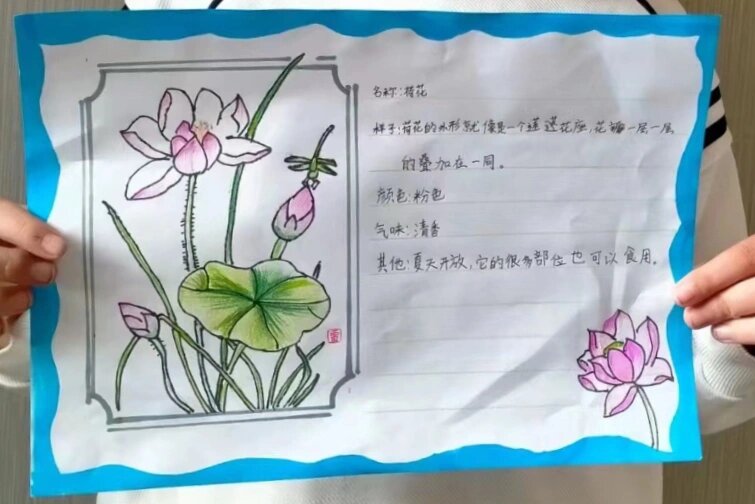 名称:荷花
样子:荷花的外形就像是一个莲蓬花座,花瓣一层一层
的叠加在一同。
颜色:粉色
气味:清香
其他:夏天开放,它的很多部位也可以食用。